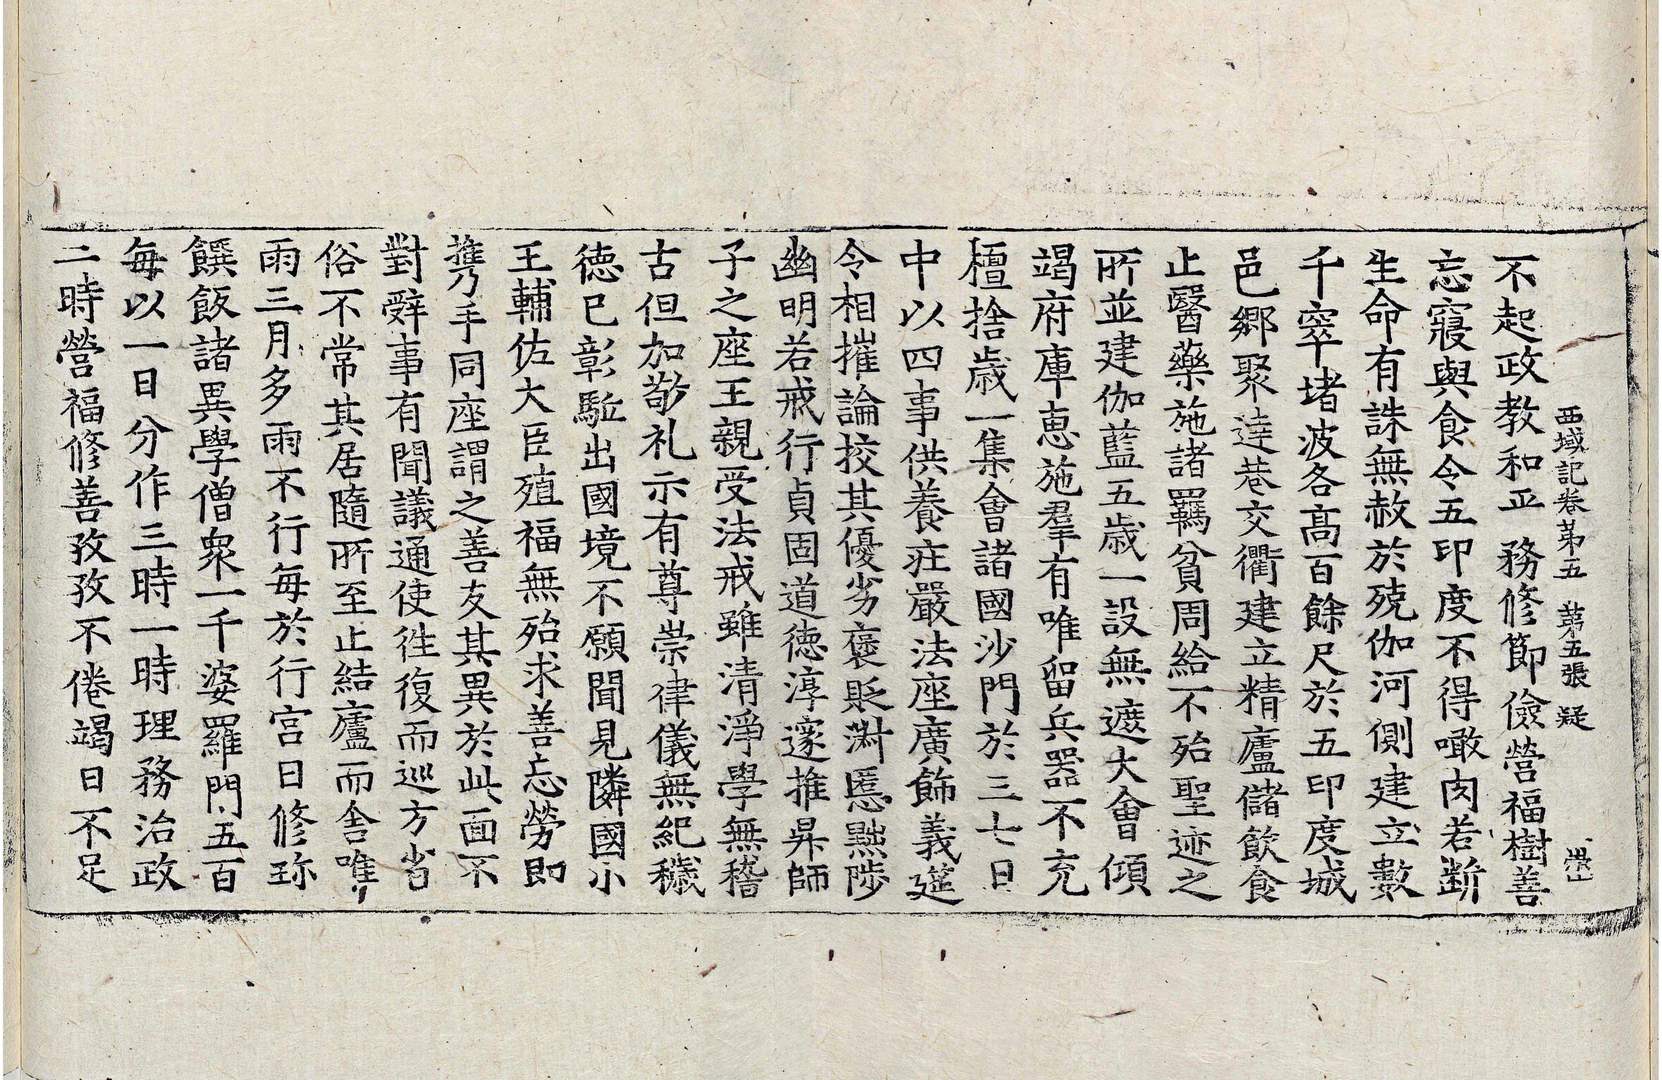 西域記卷第五　第五張　疑
不起政教和平務修節儉營福樹善
忘寢與食令五印度不得噉肉若斷
生命有誅無赦於殑伽河側建立數
千窣堵波各高百餘尺於五印度城
邑鄉聚達巷交衢建立精廬儲飲食
止醫藥施諸羈貧周給不殆聖迹之
所並建伽藍五歲一設無遮大會傾
竭府庫惠施羣有唯留兵器不充
檀捨歲一集會諸國沙門於三七日
中以四事供養莊嚴法座廣飾義筵
令相摧論挍其優劣褒貶淑慝黜陟
幽明若戒行貞固道德淳邃推昇師
子之座王親受法戒雖清淨學無稽
古但加敬礼示有尊崇律儀無紀穢
德已彰駈出國境不願聞見隣國小
王輔佐大臣殖福無殆求善忘勞即
携手同座謂之善友其異於此面不
對辭事有聞議通使往復而巡方省
俗不常其居隨所至止結廬而舍唯
雨三月多雨不行每於行宮日修珎
饌飯諸異學僧衆一千婆羅門五百
每以一日分作三時一時理務治政
二時營福修善孜孜不倦竭日不足